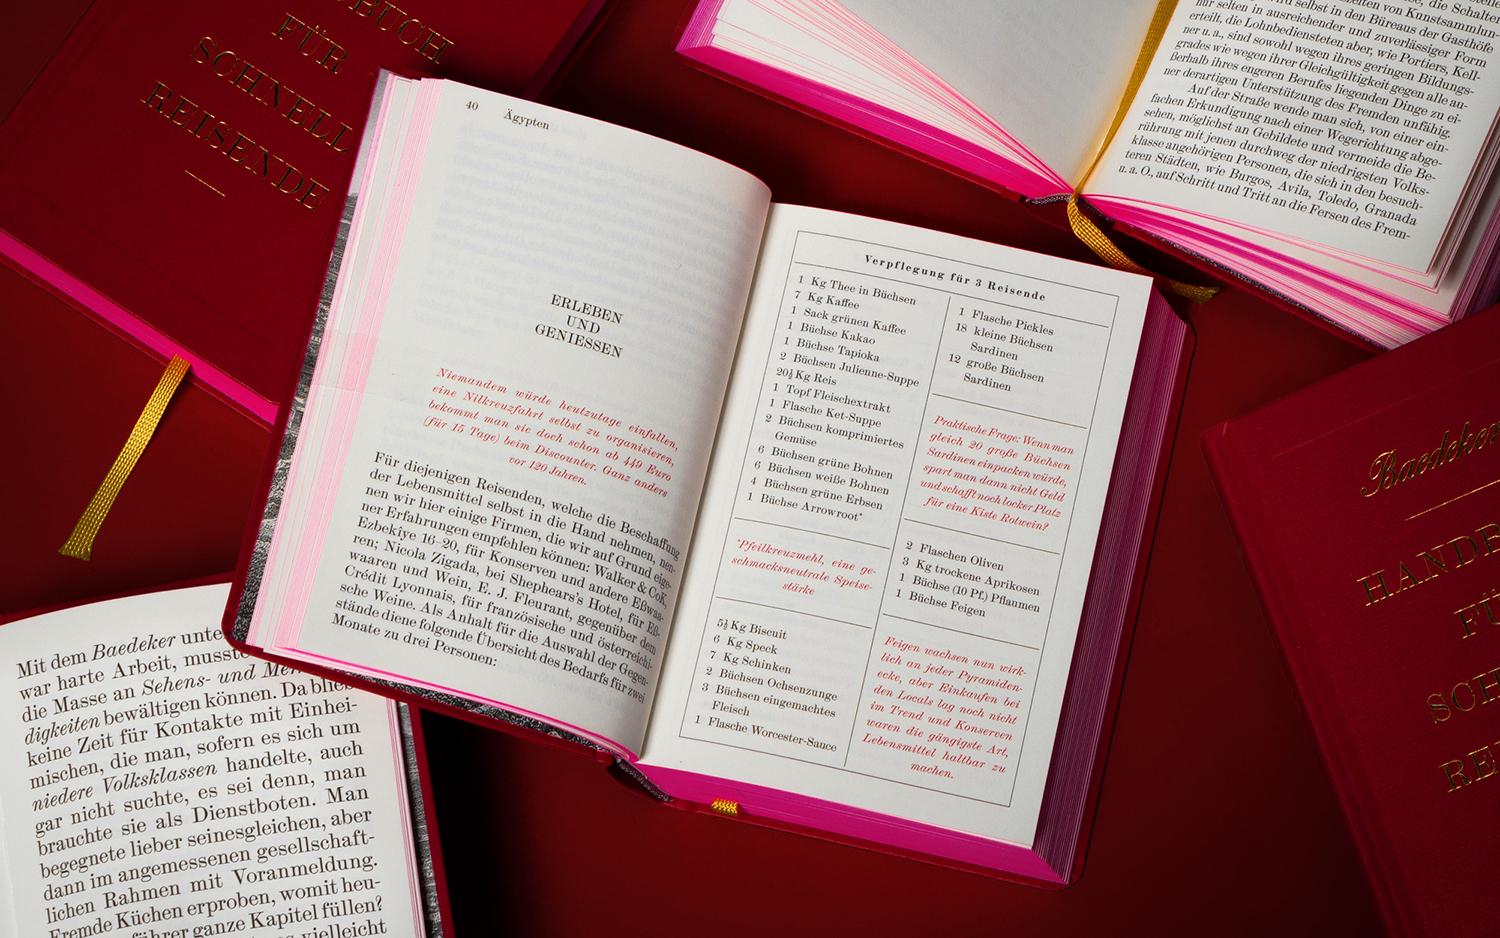 BUCH
FÜR
SCHNELL
REISENDE
40
Ägypten
ERLEBEN
UND
GENIESSEN
Niemandem würde heutzutage einfallen,
eine Nilkreuzfahrt selbst zu organisieren,
bekommt man sie doch schon ab 449 Euro
(für 15 Tage) beim Discounter. Ganz anders
vor 120 Jahren.
Für diejenigen Reisenden, welche die Beschaffung
der Lebensmittel selbst in die Hand nehmen, nen-
nen wir hier einige Firmen, die wir auf Grund eige-
ner Erfahrungen empfehlen können: Walker & Co
Ezbekîye 16–20, für Konserven und andere Eßwaa-
ren; Nicola Zigada, bei Shephears's Hotel, für Eß-
waaren und Wein, E. J. Fleurant, gegenüber dem
Crédit Lyonnais, für französische und österreichi-
sche Weine. Als Anhalt für die Auswahl der Gegen-
stände diene folgende Übersicht des Bedarfs für zwei
Monate zu drei Personen:
Verpflegung für 3 Reisende
1 Kg Thee in Büchsen
7 Kg Kaffee
1 Sack grünen Kaffee
1 Büchse Kakao
1 Büchse Tapioka
2 Büchsen Julienne-Suppe
20½ Kg Reis
1 Topf Fleischextrakt
1 Flasche Ket-Suppe
2 Büchsen komprimiertes
Gemüse
6 Büchsen grüne Bohnen
6 Büchsen weiße Bohnen
4 Büchsen grüne Erbsen
1 Büchse Arrowroot*
*Pfeilkreuzmehl, eine ge-
schmacksneutrale Speise-
stärke
5½ Kg Biscuit
6 Kg Speck
7 Kg Schinken
2 Büchsen Ochsenzunge
3 Büchsen eingemachtes
Fleisch
1 Flasche Worcester-Sauce
1 Flasche Pickles
18 kleine Büchsen
Sardinen
12 große Büchsen
Sardinen
Praktische Frage: Wenn man
gleich 20 große Büchsen
Sardinen einpacken würde,
spart man dann nicht Geld
und schafft noch locker Platz
für eine Kiste Rotwein?
2 Flaschen Oliven
3 Kg trockene Aprikosen
1 Büchse (10 Pf.) Pflaumen
1 Büchse Feigen
Feigen wachsen nun wirk-
lich an jeder Pyramiden-
ecke, aber Einkaufen bei
den Locals lag noch nicht
im Trend und Konserven
waren die gängigste Art,
Lebensmittel haltbar zu
machen.
selbst in den Büreaus der Gasthöfe
nur selten in ausreichender und zuverlässiger Form
erteilt, die Lohnbediensteten aber, wie Portiers, Kell-
ner u. a., sind sowohl wegen ihres geringen Bildungs-
grades wie wegen ihrer Gleichgültigkeit gegen alle au-
ßerhalb ihres engeren Berufes liegenden Dinge zu ei-
ner derartigen Unterstützung des Fremden unfähig.
Auf der Straße wende man sich, von einer ein-
fachen Erkundigung nach einer Wegerichtung abge-
sehen, möglichst an Gebildete und vermeide die Be-
rührung mit jenen durchweg der niedrigsten Volks-
klasse angehörigen Personen, die sich in den besuch-
teren Städten, wie Burgos, Avila, Toledo, Granada
u. a. O., auf Schritt und Tritt an die Fersen des Frem-
Mit dem Baedeker unte
war harte Arbeit, musste
die Masse an Sehens- und
digkeiten bewältigen können. Da blieb
keine Zeit für Kontakte mit Einhei-
mischen, die man, sofern es sich um
niedere Volksklassen handelte, auch
gar nicht suchte, es sei denn, man
brauchte sie als Dienstboten. Man
begegnete lieber seinesgleichen, aber
dann im angemessenen gesellschaft-
lichen Rahmen mit Voranmeldung.
Fremde Küchen erproben, womit heu-
führer ganze Kapitel füllen?
vielleicht
Baedeker
HANDB
FÜ
SCH
RE